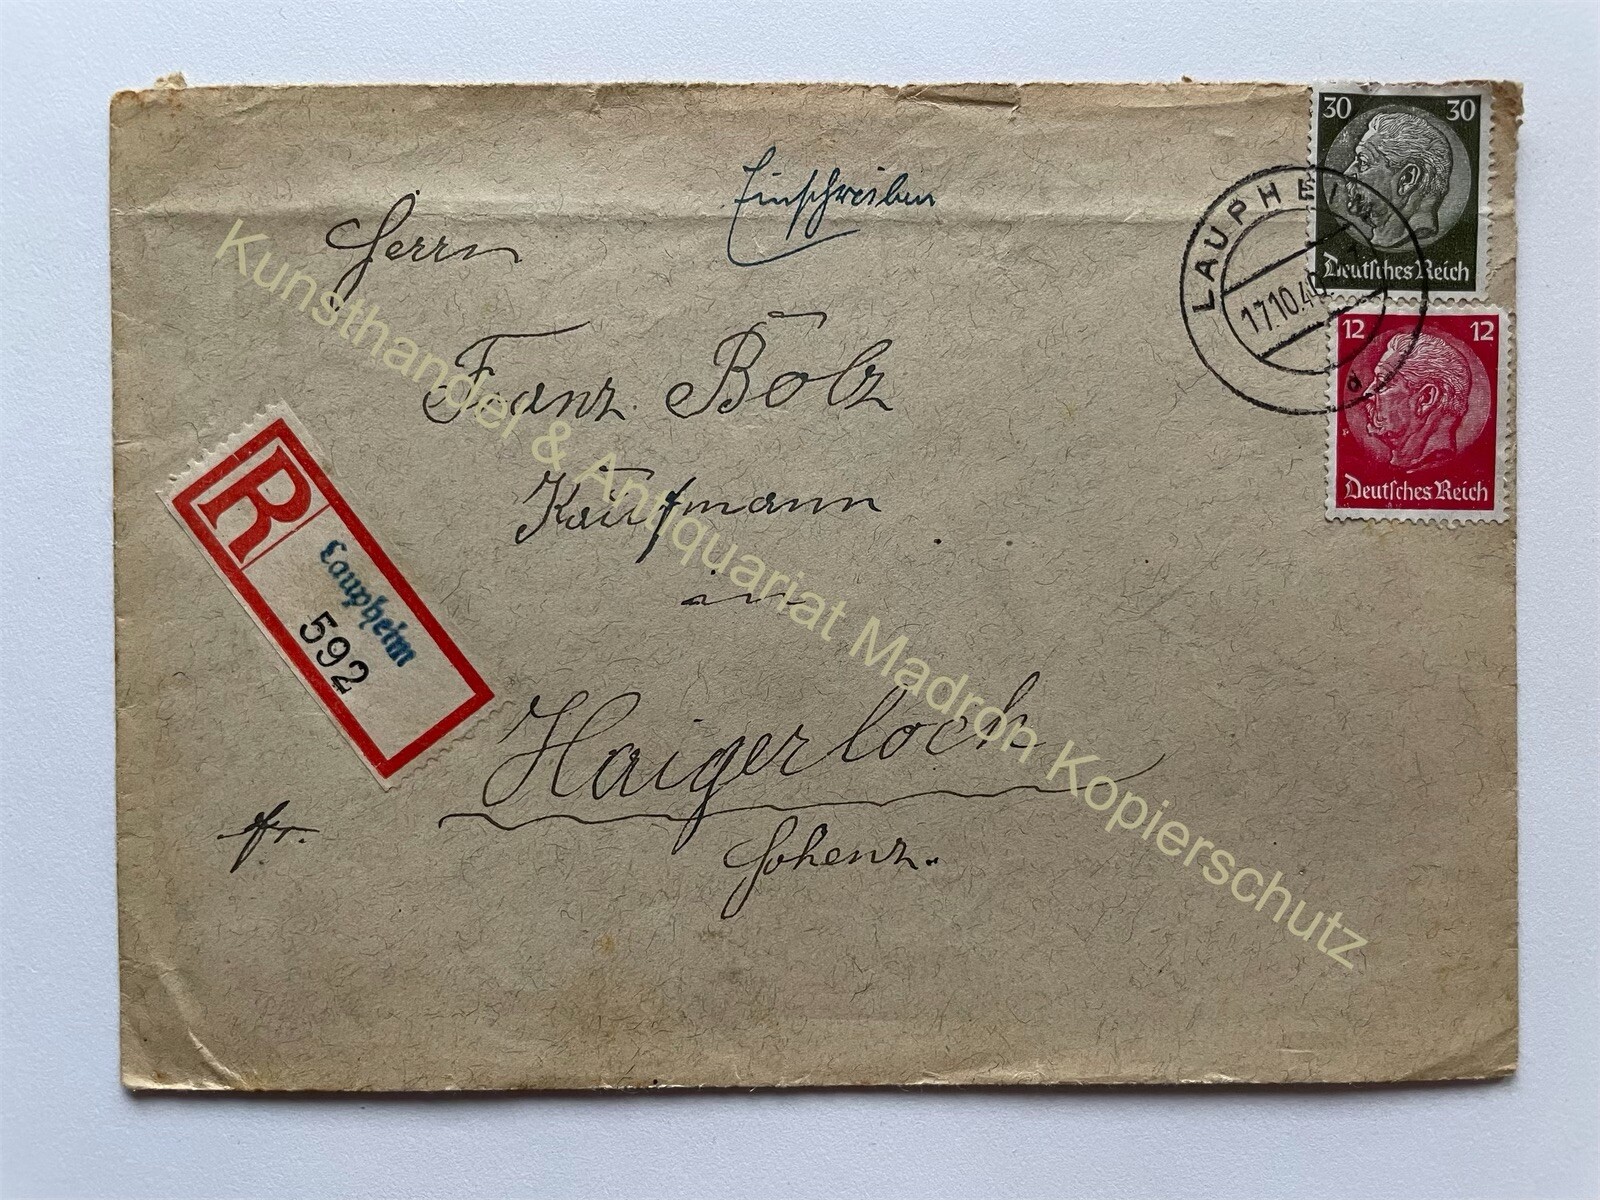 Einschreiben
Herrn
Franz Bolz
Kaufmann
in
Haigerloch
Hohenz.
fr.
R
Laupheim
592
LAUPHEIM
17.10.40
d
30 30
Deutsches Reich
12 12
Deutsches Reich
Kunsthandel & Antiquariat Madron Kopierschutz